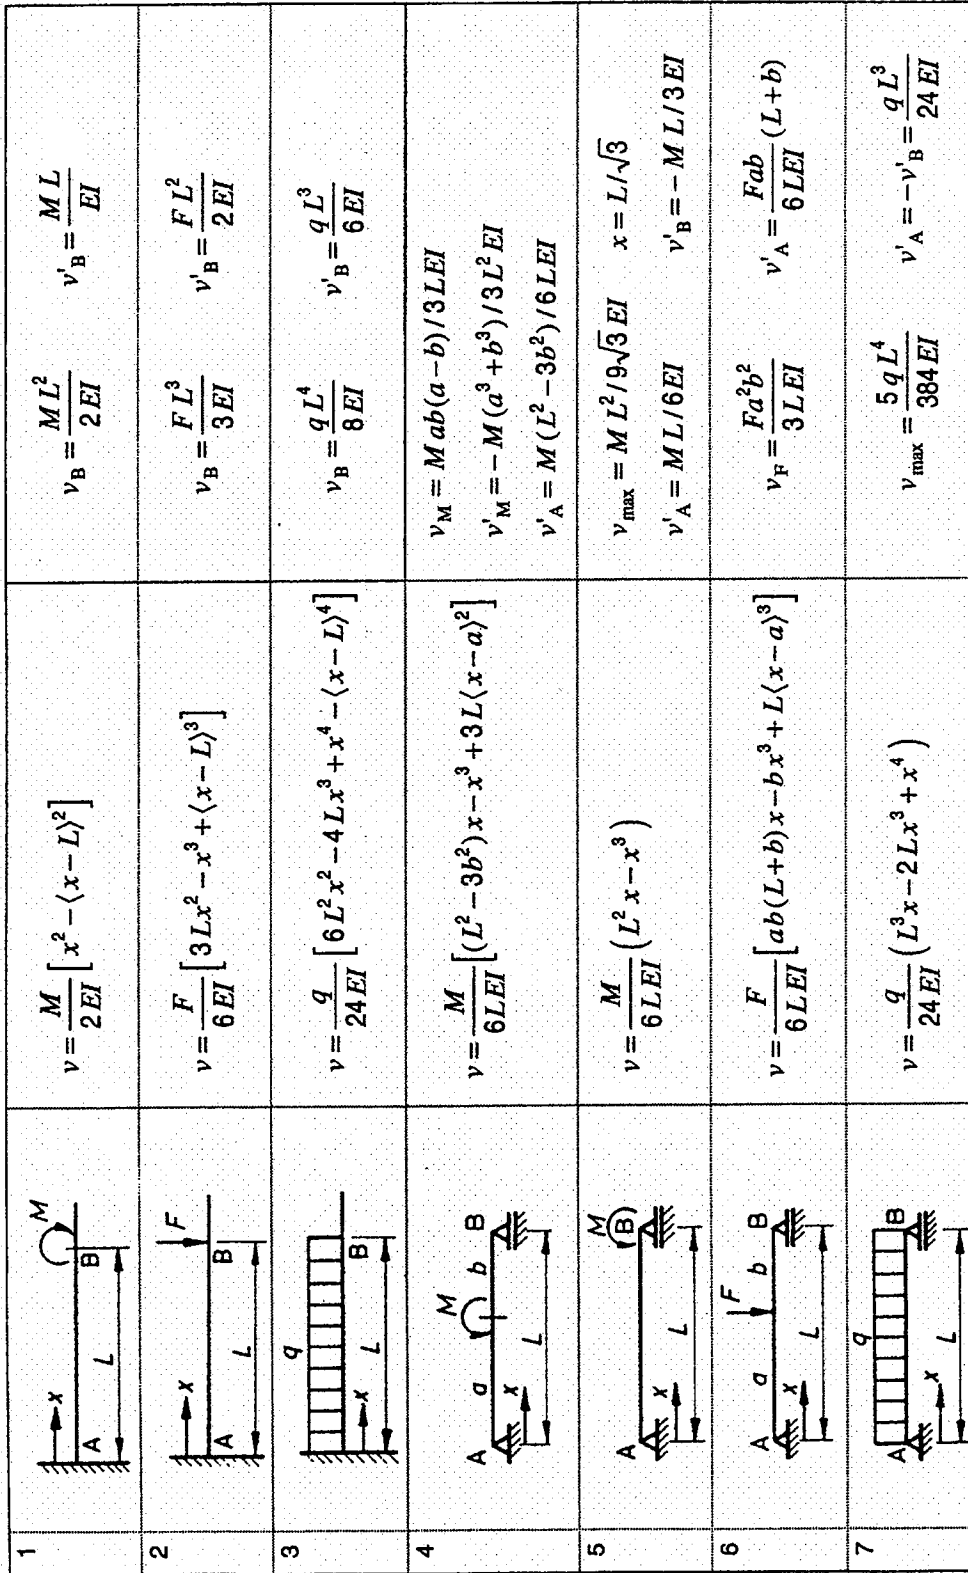 1
M
x
A
B
L
v = M/2EI [x² − ⟨x − L⟩²]
v_B = ML²/2EI   v'_B = ML/EI
2
F
x
A
B
L
v = F/6EI [3Lx² − x³ + ⟨x − L⟩³]
v_B = FL³/3EI   v'_B = FL²/2EI
3
q
x
B
L
v = q/24EI [6L²x² − 4Lx³ + x⁴ − ⟨x − L⟩⁴]
v_B = qL⁴/8EI   v'_B = qL³/6EI
4
M
A
a
b
B
x
L
v = M/6LEI [(L² − 3b²)x − x³ + 3L⟨x − a⟩²]
v_M = Mab(a − b)/3LEI
v'_M = −M(a³ + b³)/3L²EI
v'_A = M(L² − 3b²)/6LEI
5
M
A
B
x
L
v = M/6LEI (L²x − x³)
v_max = ML²/9√3EI   x = L/√3
v'_A = ML/6EI   v'_B = −ML/3EI
6
F
A
a
b
B
x
L
v = F/6LEI [ab(L + b)x − bx³ + L⟨x − a⟩³]
v_F = Fa²b²/3LEI   v'_A = Fab/6LEI (L + b)
7
q
A
B
x
L
v = q/24EI (L³x − 2Lx³ + x⁴)
v_max = 5qL⁴/384EI   v'_A = −v'_B = qL³/24EI